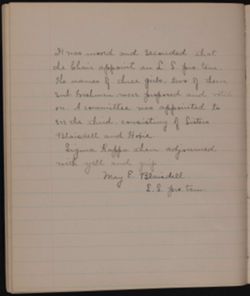 It was moved and seconded that
the Chair appoint an L. S. pro. tem.
The names of three girls, two of them
Freshmen were proposed and voted
on. A committee was appointed to
consisting of Sisters
Blaisdell and Hope.
Sigma Kappa then adjourned
with yell and grip.
May E. Blaisdell
L. S. pro tem